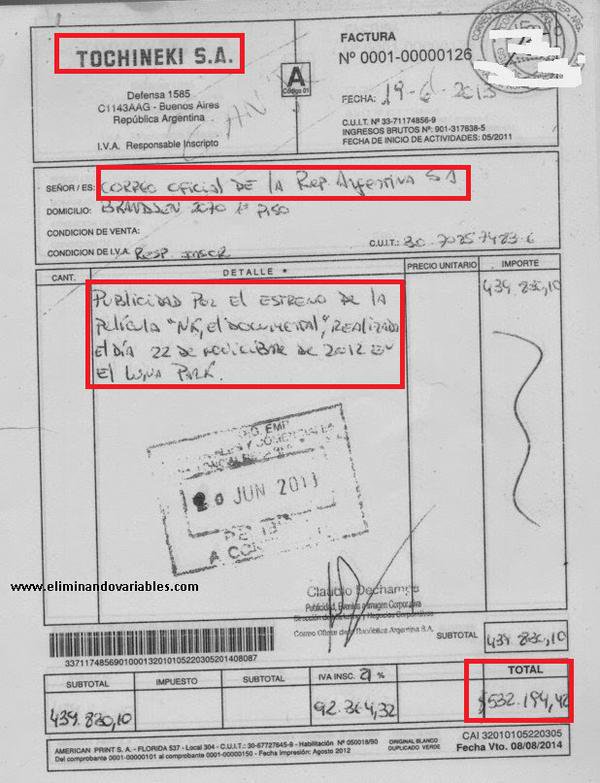 TOCHINEKI S.A.
Defensa 1585
C1143AAG - Buenos Aires
República Argentina
I.V.A. Responsable Inscripto
A
Código 01
FACTURA
Nº 0001-00000126
FECHA: 19-6-2013
C.U.I.T. Nº 33-71174856-9
INGRESOS BRUTOS Nº: 901-317638-5
FECHA DE INICIO DE ACTIVIDADES: 05/2011
SEÑOR/ES: CORREO OFICIAL DE LA REP. ARGENTINA SA
DOMICILIO: BRANDSEN 2070 1º PISO
CONDICION DE VENTA:
CONDICION DE I.V.A. RESP. INSCR C.U.I.T.: 30-70857483-6
CANT. DETALLE PRECIO UNITARIO IMPORTE
439.830,10
PUBLICIDAD POR EL ESTRENO DE LA
PELÍCULA "NK, EL DOCUMENTAL", REALIZADO
EL DÍA 22 DE NOVIEMBRE DE 2012 EN
EL LUNA PARK.
20 JUN 201
www.eliminandovariables.com
Claudio Dechamps
Publicidad, Eventos e Imagen Corporativa
Dirección de Marketing y Negocios Corporativos
Correo Oficial de la República Argentina S.A.
SUBTOTAL 439.830,10
3371174856901000132010105220305201408087
SUBTOTAL IMPUESTO SUBTOTAL IVA INSC. 21 % TOTAL
439.830,10 92.364,32 $532.194,42
AMERICAN PRINT S. A. - FLORIDA 537 - Local 304 - C.U.I.T.: 30-67727645-6 - Habilitación Nº 050018/90
Del comprobante 0001-00000101 al comprobante 0001-00000150 - Fecha Impresión: Agosto 2012
ORIGINAL BLANCO
DUPLICADO VERDE
CAI 32010105220305
Fecha Vto. 08/08/2014